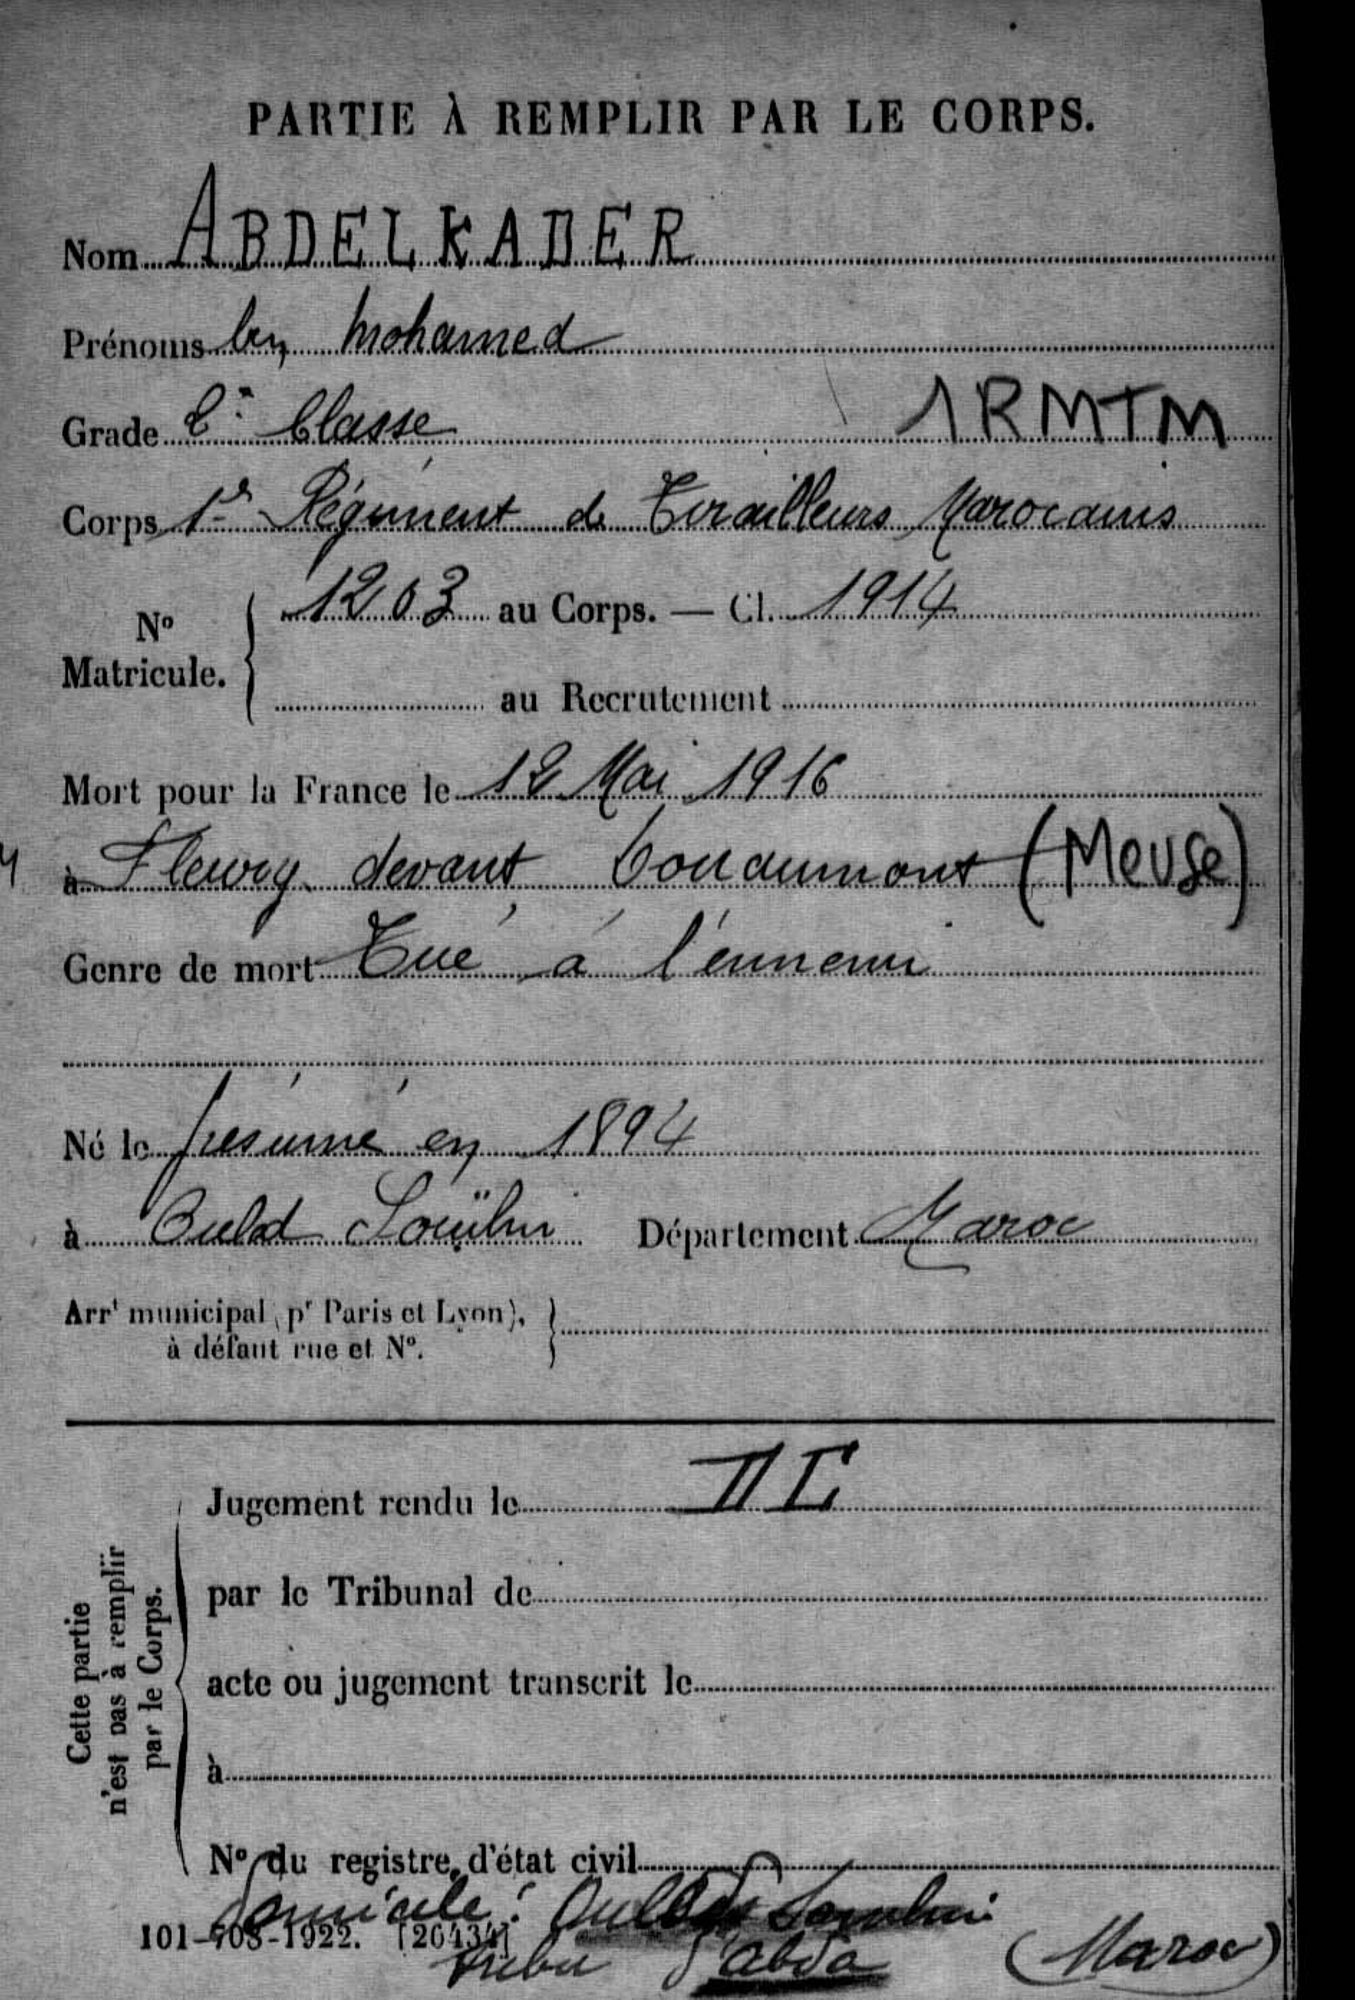 PARTIE À REMPLIR PAR LE CORPS.
Nom ABDELKADER
Prénoms ben Mohamed
Grade 2e Classe
1RMTM
Corps 1er Régiment de Tirailleurs Marocains
No Matricule. 1203 au Corps. — Cl. 1914
au Recrutement
Mort pour la France le 12 Mai 1916
à Fleury devant Douaumont (Meuse)
Genre de mort Tué à l'ennemi
Né le présumé en 1894
à Ouled Département Maroc
Arrt municipal (pr Paris et Lyon),
à défaut rue et No.
Cette partie
n'est pas à remplir
par le Corps.
Jugement rendu le
par le Tribunal de
acte ou jugement transcrit le
à
No du registre d'état civil
domicile : Oulled
101-708-1922. [26434]
tribu d'abda (Maroc)